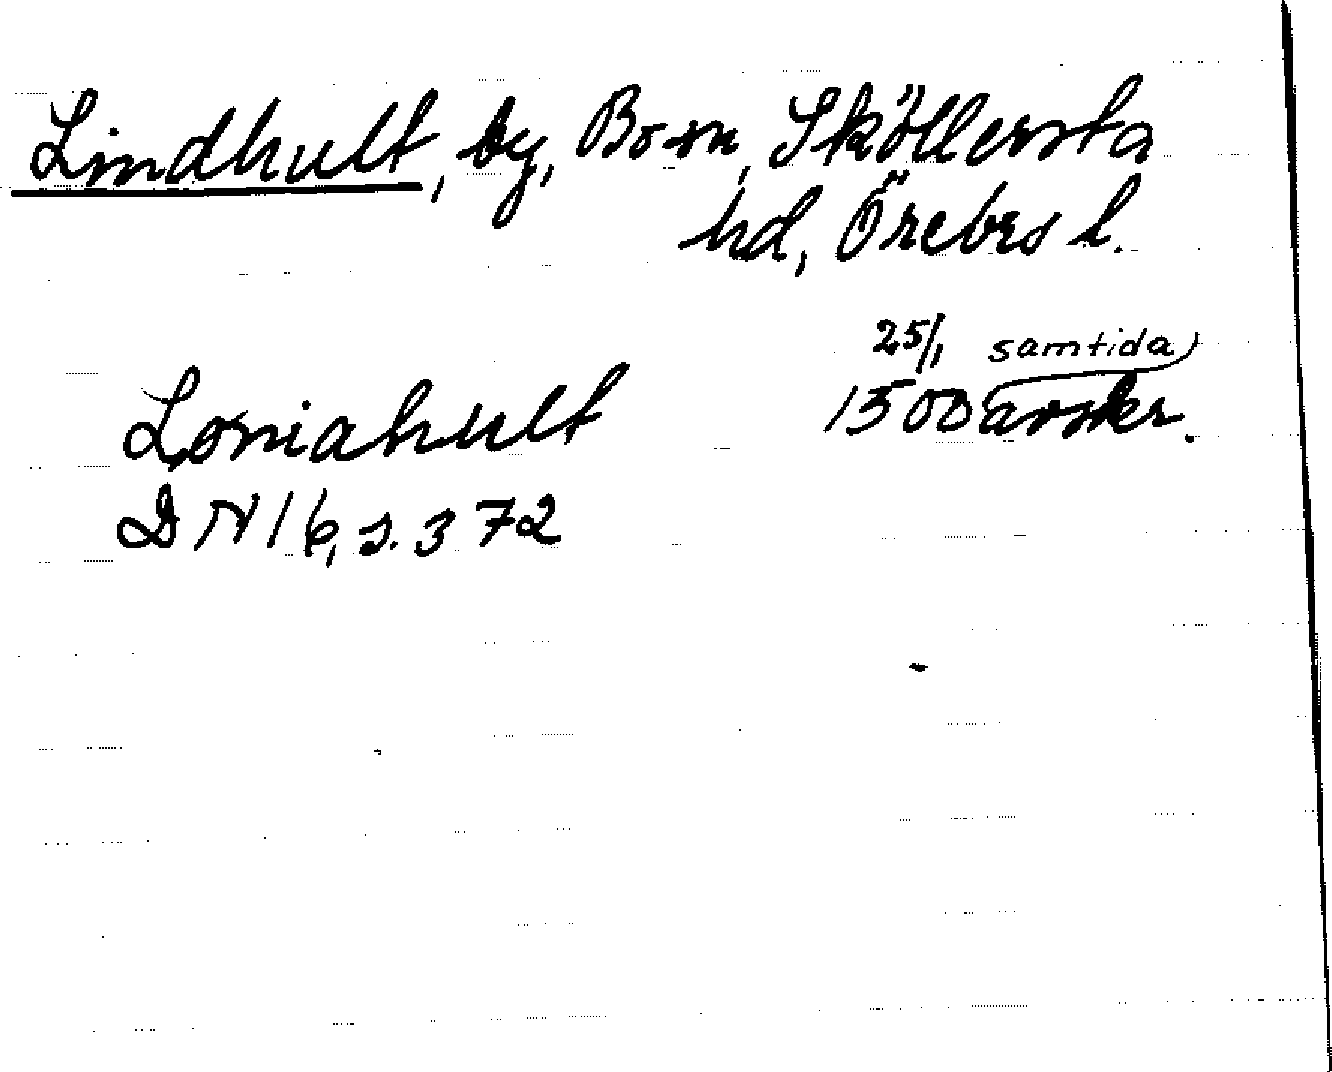 Lindhult, by, Bo sn, Sköllersta
hd, Örebro l.
Loniahult 25/1 samtida
1500 avskr.
DN 16, s. 372